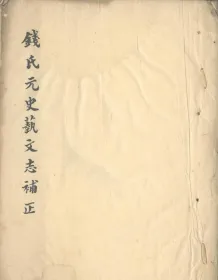 錢氏元史藝文志補正